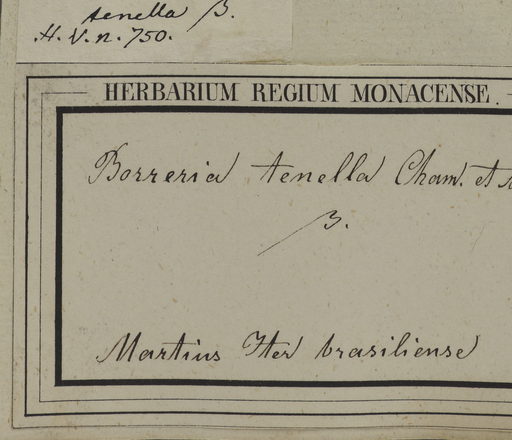 tenella β.
H. V. n. 750.
HERBARIUM REGIUM MONACENSE.
Borreria tenella Cham. et
β.
Martius Iter brasiliense